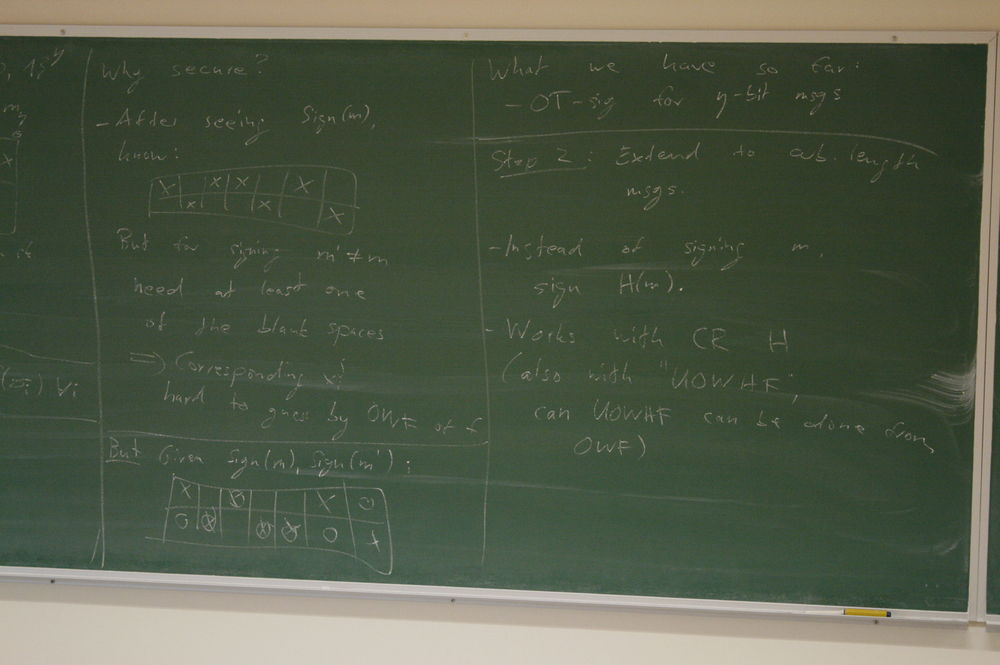 Why secure?
- After seeing Sign(m),
know:
X X X X
X X X
But for signing m' ≠ m
need at least one
of the blank spaces
=> Corresponding
hard to guess by OWF of f
But Given Sign(m), Sign(m'):
What we have so far:
- OT-sig for η-bit msgs
Step 2: Extend to arb. length
msgs.
- Instead of signing m,
sign H(m).
- Works with CR H
(also with "UOWHF",
can UOWHF can be done from
OWF)